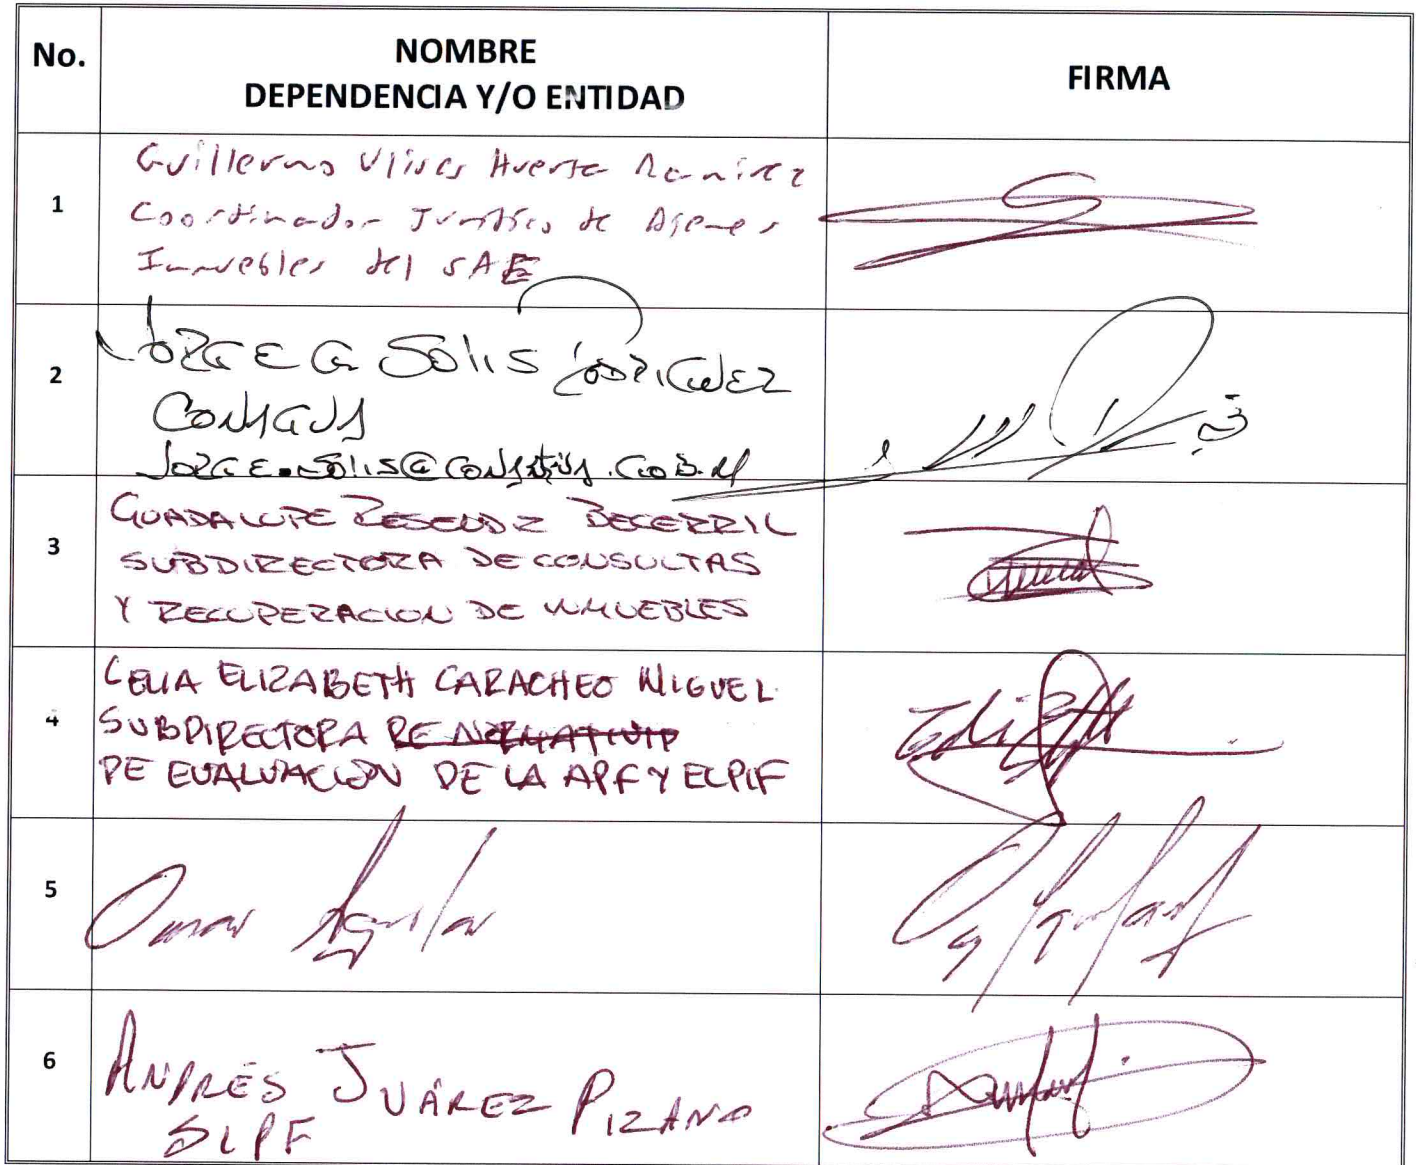 No.
NOMBRE
DEPENDENCIA Y/O ENTIDAD
FIRMA
1
Guillermo Ulises Huerta Ramírez
Coordinador Jurídico de Bienes
Inmuebles del SAE
2
JORGE G. SOLIS RODRIGUEZ
CONAGUA
3
GUADALUPE RESENDIZ BECERRIL
SUBDIRECTORA DE CONSULTAS
Y RECUPERACION DE INMUEBLES
4
CELIA ELIZABETH CARACHEO MIGUEL
SUBDIRECTORA
DE EVALUACIÓN DE LA APF Y ECPIF
5
Omar Aguilar
6
ANDRÉS JUÁREZ PIZANO